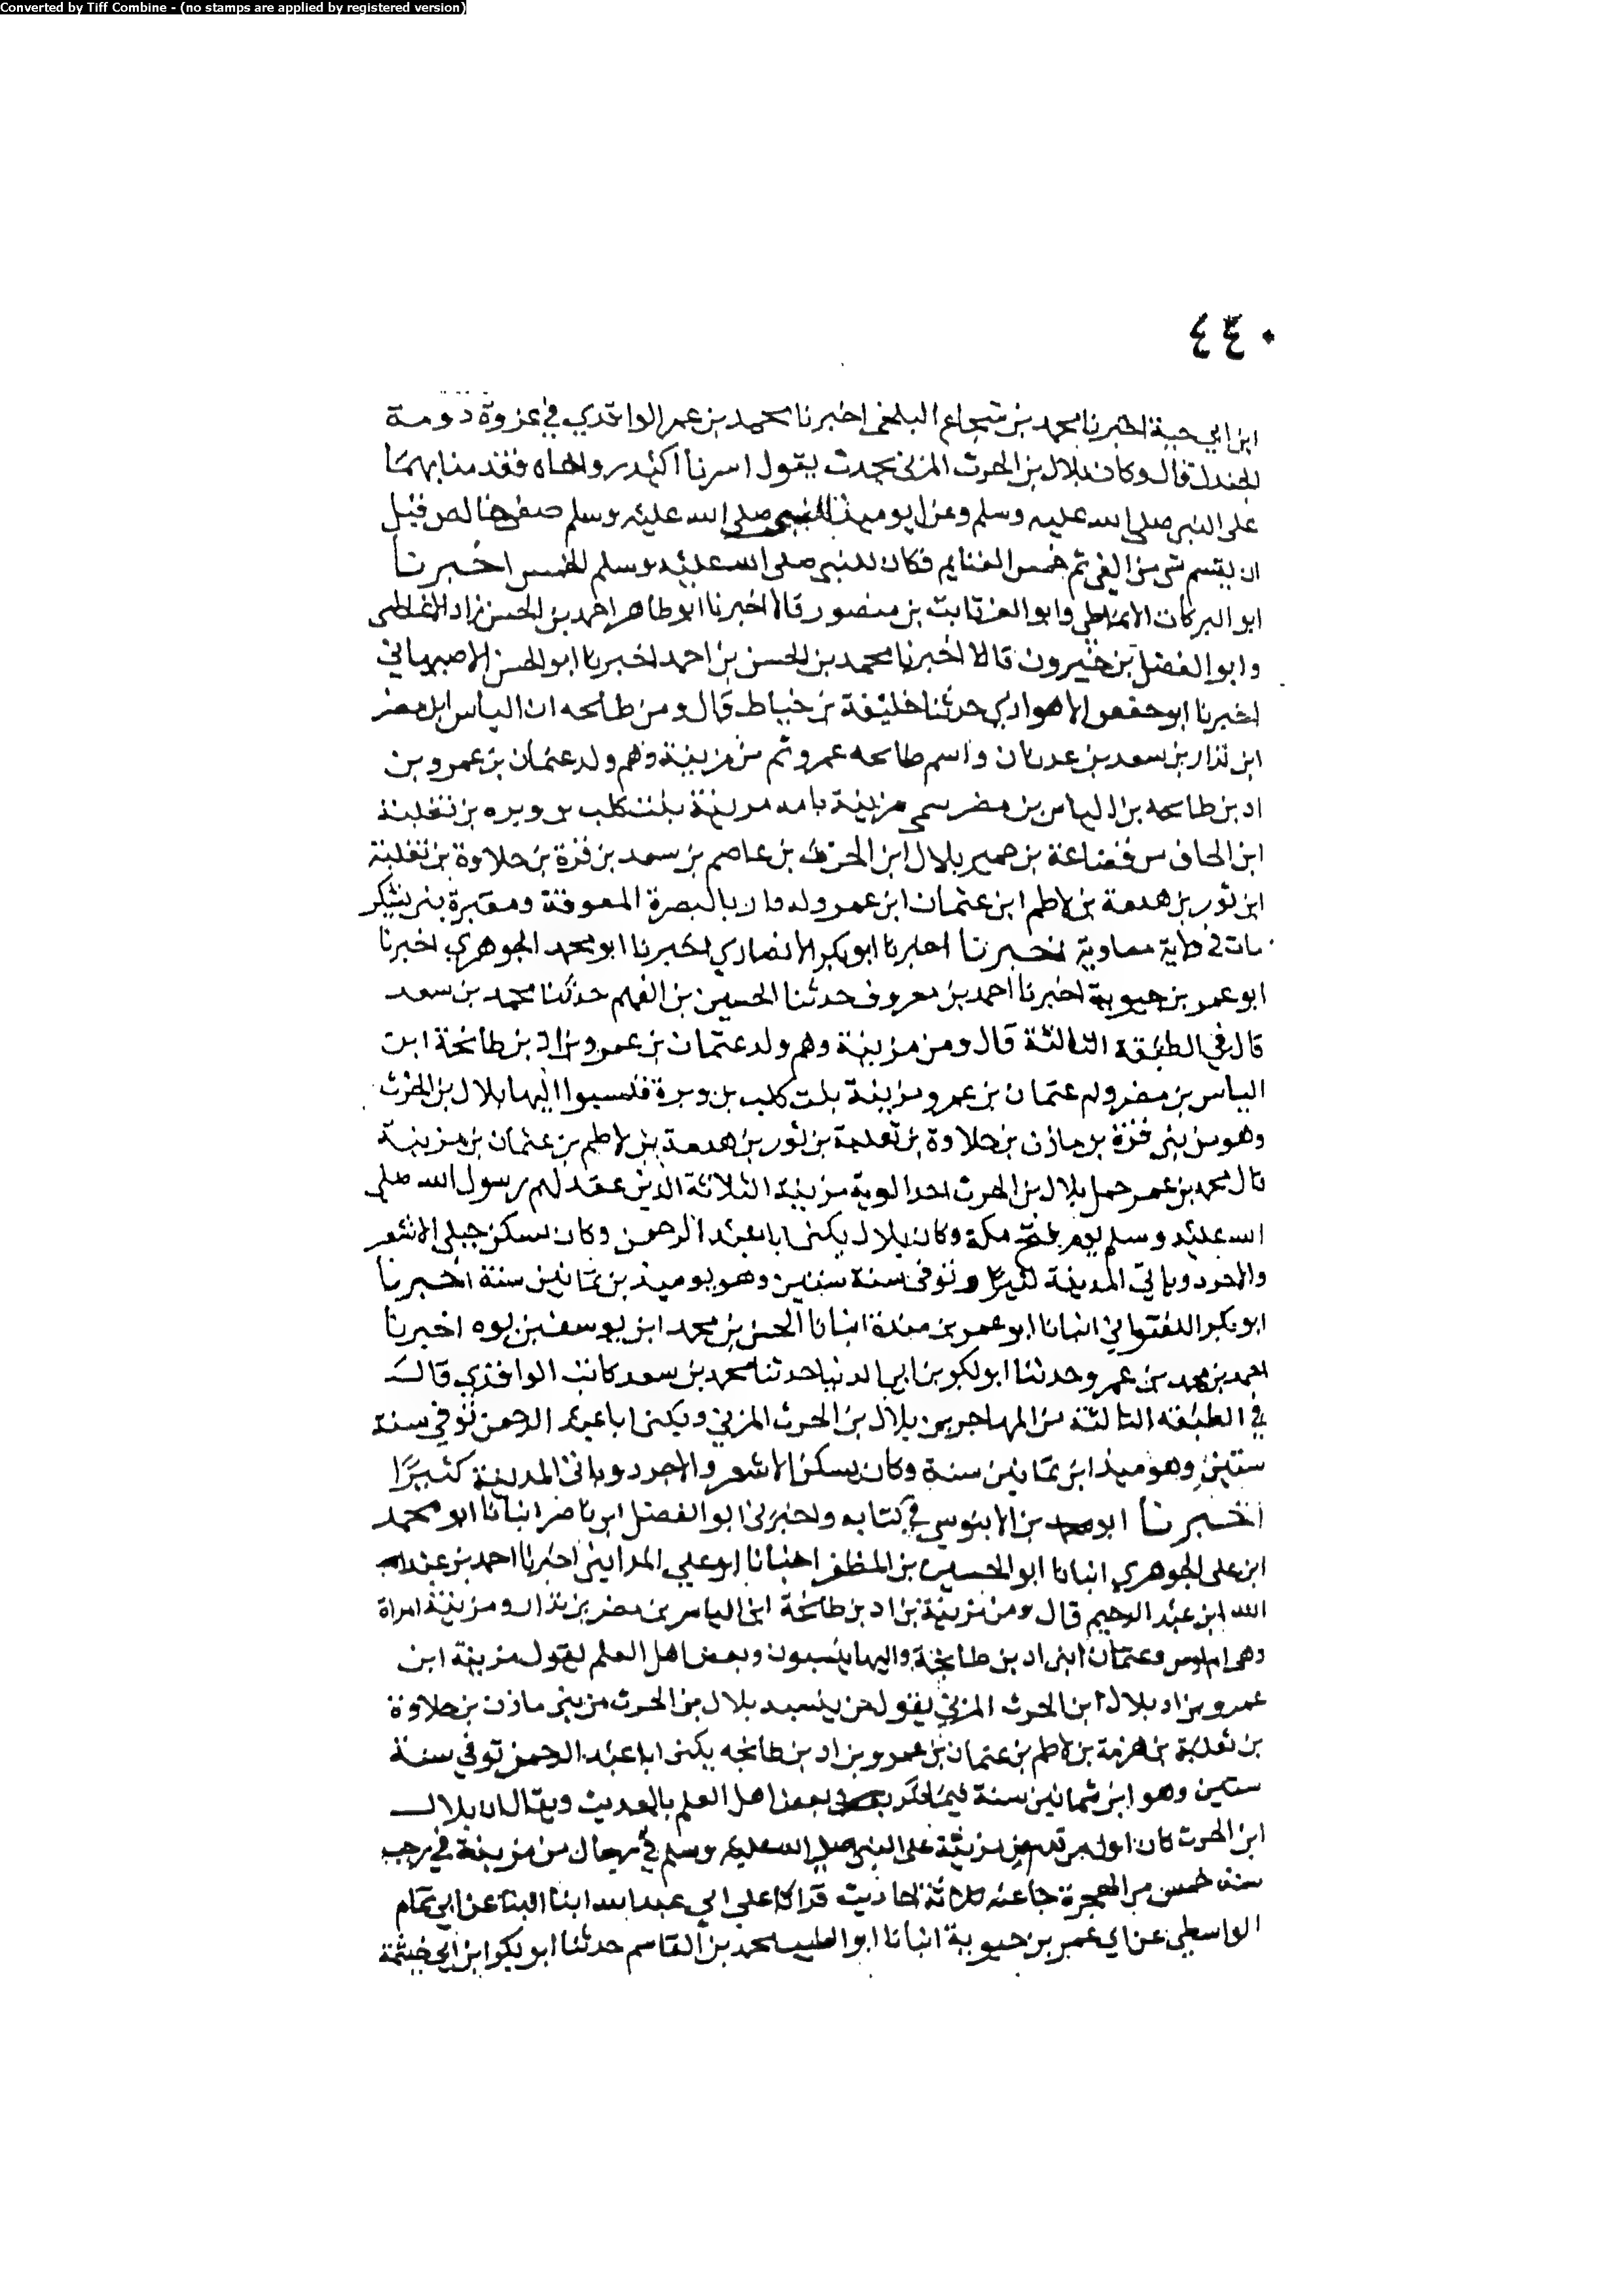 Converted by Tiff Combine - (no stamps are applied by registered version)
٤٤٠
ابن ابي حية اخبرنا محمد بن شجاع البلخى اخبرنا محمد بن عمر الواقدي في غزوة دومة
الجندل قال وكان بلال بن الحرث المزنى يحدث يقول اسرنا اكيدر واخاه فقدمنا بهما
على النبى صلى الله عليه وسلم وعزل يوميذ للنبى صلى الله عليه وسلم صفى خالص قبل
ان يقسم شى من الفى ثم خمس الغنايم فكان للنبى صلى الله عليه وسلم الخمس اخبرنا
ابو البركات الانماطي وابو العز ثابت بن منصور قالا اخبرنا ابو طاهر احمد بن الحسن زاد الانماطى
وابو الفضل بن خيرون قالا اخبرنا محمد بن الحسن بن احمد اخبرنا ابو الحسن الاصبهاني
اخبرنا ابو حفص الاهوازي حدثنا خليفة بن خياط قال ومن طابخه ان الياس ابن مضر
ابن نزار بن سعد بن عدنان واسم طابخه عمرو ثم من مزينة وهم ولد عثمان بن عمرو بن
اد بن طابخه بن الياس بن مضر سمى مزينة بامه مزينة بنت كلب بن وبره بن تغلبة
ابن الحاف بن قضاعة بن حمير بلال ابن الحرث بن عاصم بن سعد بن قرة بن خلاوة بن ثعلبة
ابن ثور بن هدمة بن لاطم ابن عثمان ابن عمرو له دار بالبصرة المعوقة ومقبرة بنى يشكر
مات في ولاية معاوية اخبرنا اخبرنا ابو بكر الانصاري اخبرنا ابو محمد الجوهري اخبرنا
ابو عمر بن حيوية اخبرنا احمد بن معروف حدثنا الحسين بن الفهم حدثنا محمد بن سعد
قال في الطبقة الثالثة قال ومن مزينة وهم ولد عثمان بن عمرو بن اد بن طابخة ابن
الياس بن مضر وام عثمان بن عمرو مزينة بنت كلب بن وبرة فنسبوا اليها بلال بن الحرث
وهو من بنى قرة بن مازن بن خلاوة بن ثعلبة بن ثور بن هدمة بن لاطم بن عثمان بن مزينة
قال محمد بن عمر حمل بلال بن الحرث احد الوية مزينة الثلاثة الذين عقد لهم رسول الله صلى
الله عليه وسلم يوم فتح مكة وكان بلال يكنى ابا عبد الرحمن وكان يسكن جبلى الاشعر
والاجرد وياتي المدينة كثيرا وتوفى سنة ستين وهو يوميذ بن ثمانين سنة اخبرنا
ابو بكر اللفتواني انبانا ابو عمر بن مندة انبانا الحسن بن محمد ابن يوسف بن يوه اخبرنا
احمد بن محمد بن عمر وحدثنا ابو بكر بن ابي الدنيا حدثنا محمد بن سعد كاتب الواقدي قال
في الطبقه الثالثة من المهاجرين بلال بن الحرث المزني ويكنى ابا عبد الرحمن توفي سنة
ستين وهو ميذ ابن ثمانين سنة وكان يسكن الاشعر والاجرد وياتى المدينة كثيرًا
اخبرنا ابو محمد بن الابنوسي في كتابه واخبرنى ابو الفضل ابن ناصر انبانا ابو محمد
ابن على الجوهري انبانا ابو الحسين بن المظفر انبانا ابو علي المدايني اخبرنا احمد بن عبد
الله ابن عبد الرحيم قال ومن مزينة بن اد بن طابخة ابن الياس بن مضر بن نزار ومزينة امراة
وهى ام اوس وعثمان ابنى اد بن طابخة واليها ينسبون وبعض اهل العلم يقول مزينة ابن
عمرو بن اد بلال ابن الحرث المزني يقول من ينسبه بلال بن الحرث من بنى مازن بن خلاوة
بن ثعلبة بن هرمة بن لاطم بن عثمان بن عمرو بن اد بن طابخه يكنى ابا عبد الرحمن توفي سنة
ستين وهو ابن ثمانين سنة فيما ذكر بعض اهل العلم بالحديث ويقال ان بلال
ابن الحرث كان اول من قدم من مزينة على النبى صلى الله عليه وسلم في رجال من مزينة في رجب
سنة خمس من الهجرة جا عنه ثلاثة احاديث قرانا على ابي عبد الله ابنا البنا عن ابي تمام
الواسطي عن ابي عمر بن حيوية انبانا ابو الطيب محمد بن القاسم حدثنا ابو بكر ابن ابي خيثمة